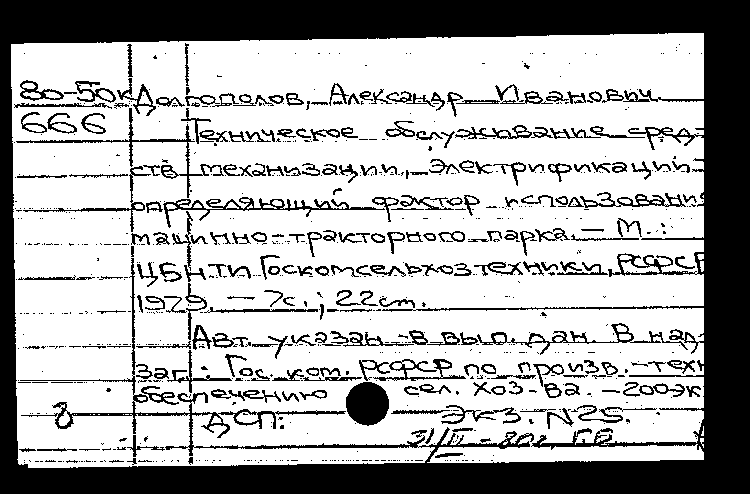 80-50к Долгополов, Александр Иванович.
666 Техническое обслуживание сред-
ств механизации, электрификации -
определяющий фактор использования
машинно-тракторного парка. - М.:
ЦБНТИ Госкомсельхозтехники, РСФСР
1979. - 7с.; 22 cm.
Авт. указан в вып. дан. В над-
заг.: Гос. ком. РСФСР по произв.-техн
обеспечению сел. хоз-ва. - 200 эк
8 ДСП: Экз. N25.
31/III - 80г.